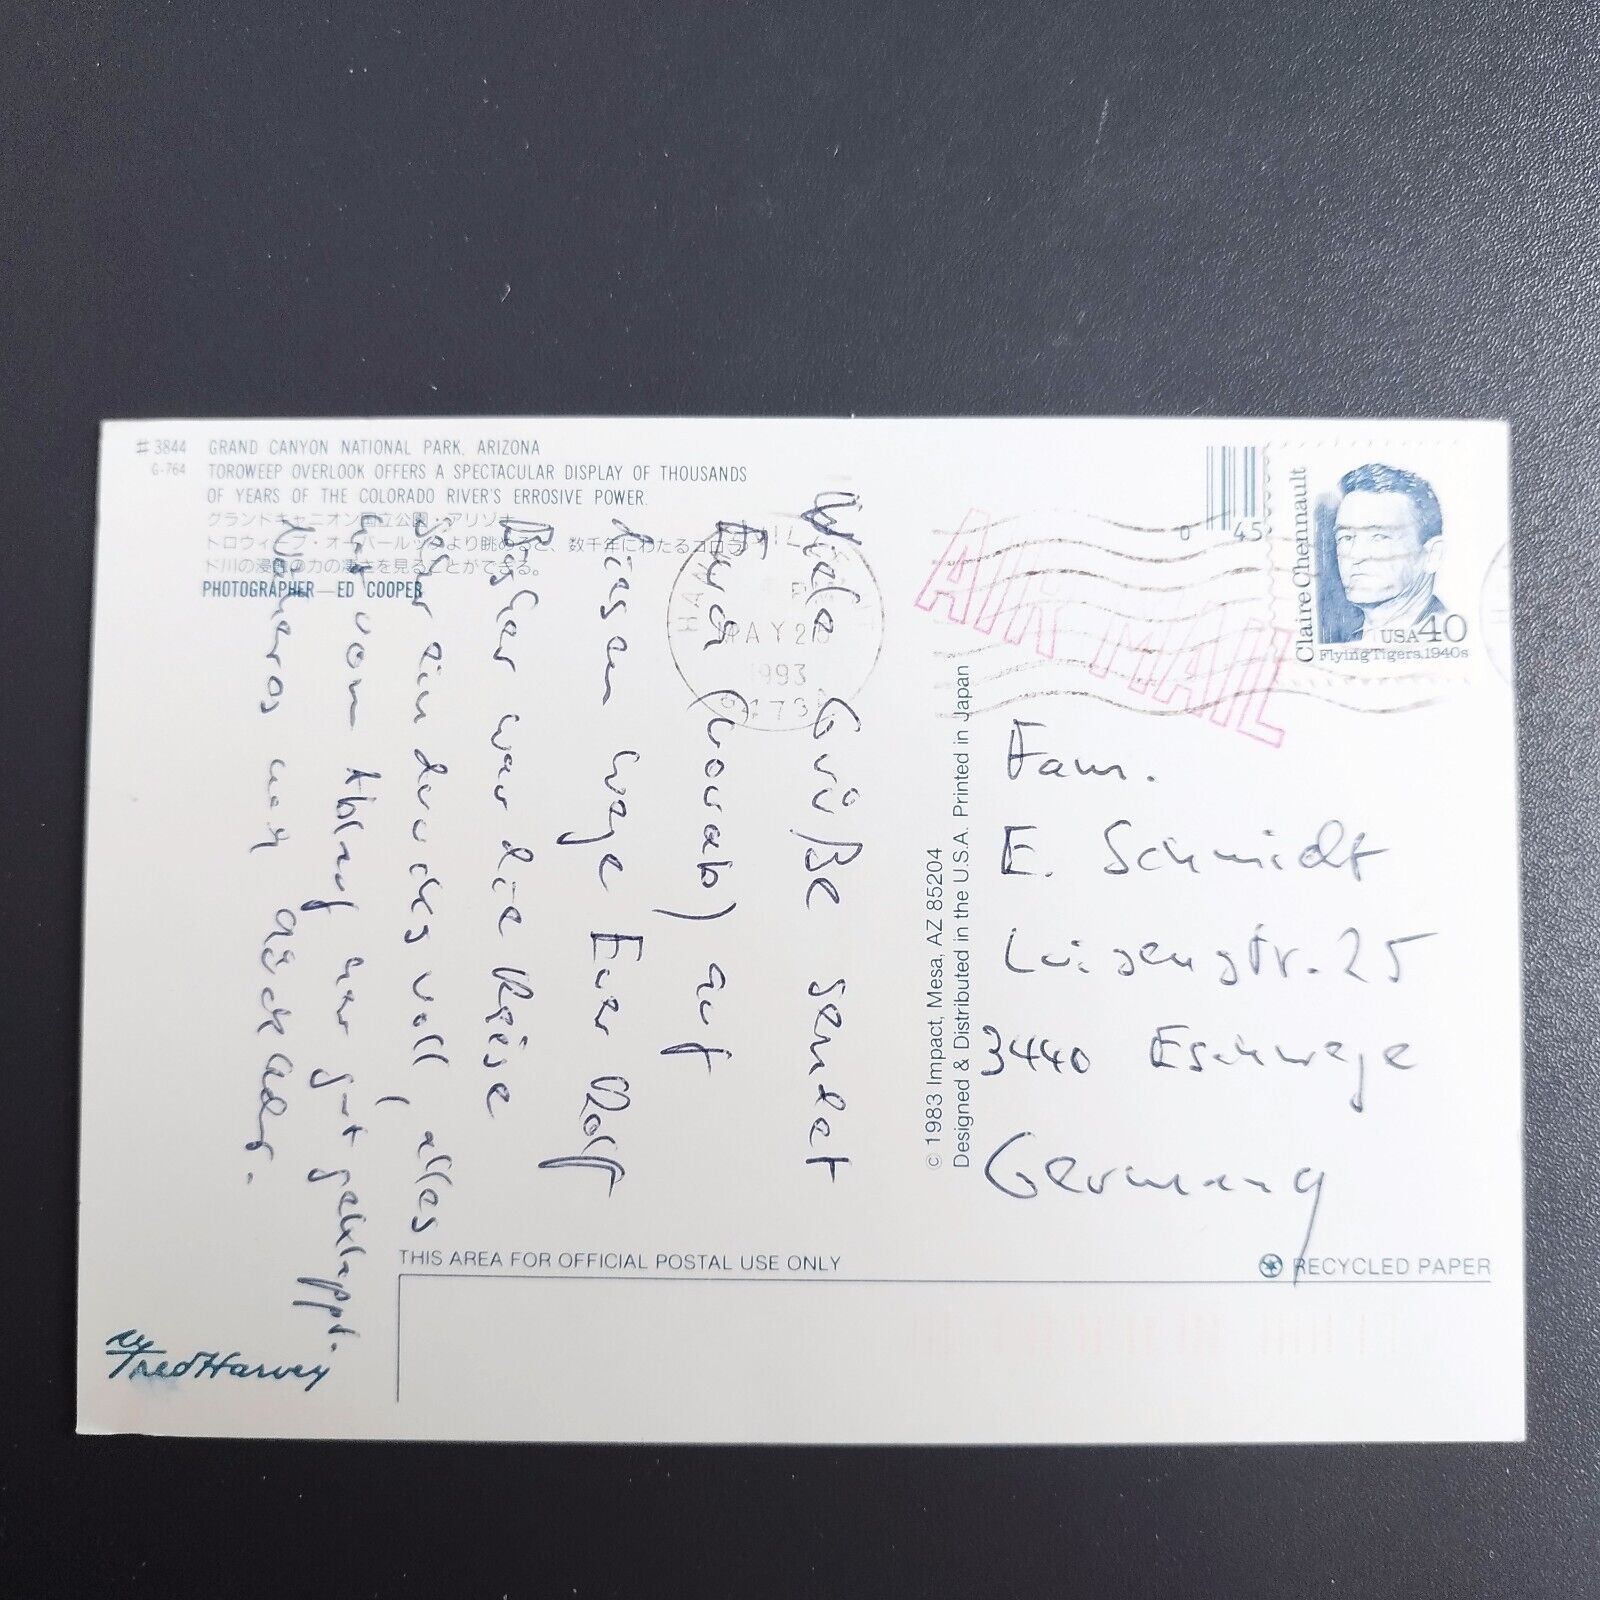 #3844 GRAND CANYON NATIONAL PARK, ARIZONA
G-764 TOROWEEP OVERLOOK OFFERS A SPECTACULAR DISPLAY OF THOUSANDS
OF YEARS OF THE COLORADO RIVER'S ERROSIVE POWER.
グランドキャニオン国立公園・アリゾナ
トロウィープ・オーバールックより眺めると、数千年にわたるコロラ
ド川の浸蝕の力の凄さを見ることができる。
PHOTOGRAPHER—ED COOPER
Viele Grüße sendet
Euch (vorab) auf
diesem Wege Euer Rolf
Bisher war die Reise
sehr eindrucksvoll, alles
hat vom Ablauf her gut geklappt.
Näheres nach Rückkehr.
Fred Harvey
© 1983 Impact, Mesa, AZ 85204
Designed & Distributed in the U.S.A. Printed in Japan
MAY 20
1993
AIR MAIL
0 45
Claire Chennault
USA 40
Flying Tigers, 1940s
Fam.
E. Schmidt
Luisenstr. 25
3440 Eschwege
Germany
THIS AREA FOR OFFICIAL POSTAL USE ONLY
RECYCLED PAPER